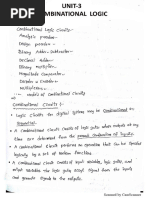 UNIT-3
COMBINATIONAL LOGIC
Combinational Logic Circuits -
Analysis procedure -
Design procedure -
Binary Adder - Subtractor -
Decimal Adder -
Binary multiplier -
Magnitude Comparator -
Decoder -
Encoders -
Multiplexers -
models of Combinational Circuits
Combinational Circuits :-
Logic Circuits for digital systems may be Combinational or
Sequential.
A Combinational Circuit Consists of logic gates whose outputs at any
time are determined from the present Combination of inputs.
A Combinational Circuit performs an operation that can be specified
logically by a set of Boolean functions.
A Combinational Circuit Consists of input variables, logic gates, and
output variables. The logic gates accept signals from the inputs
and generate signals to the outputs.
Scanned by CamScanner